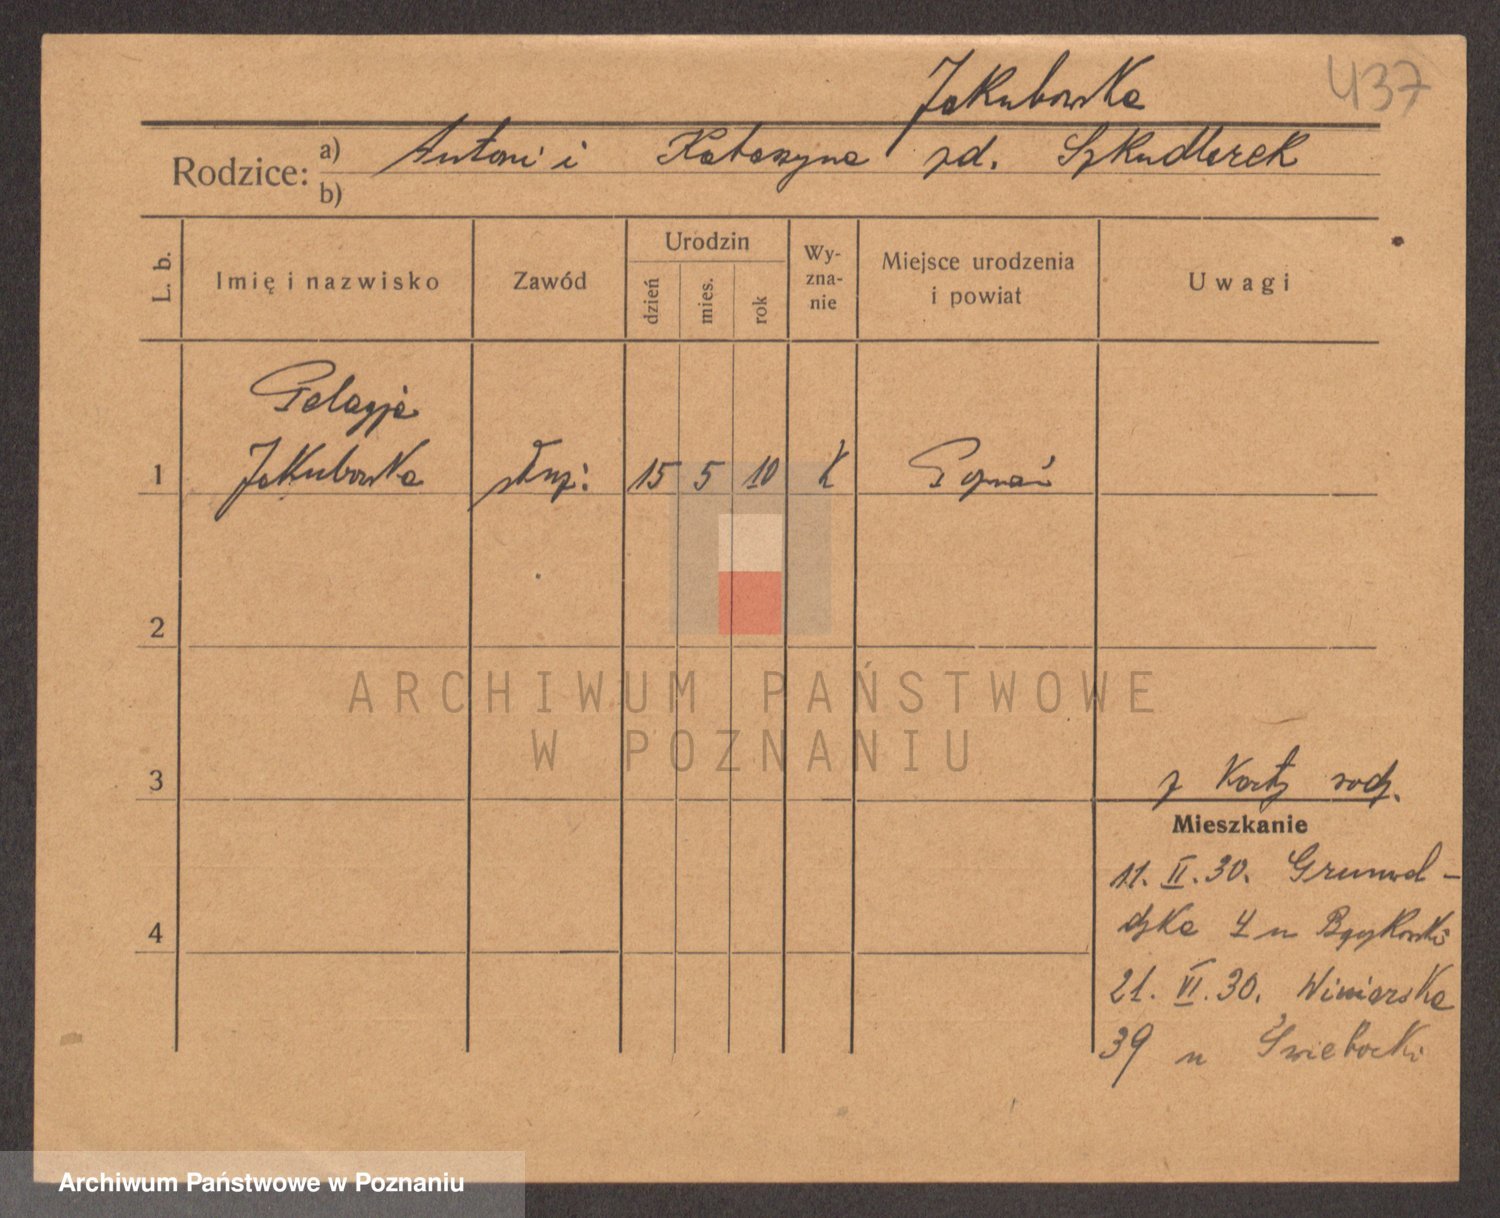 Jakubowska
437
Rodzice: a) Antoni i Katarzyna zd. Szkudlarek
b)
L. b.
Imię i nazwisko
Zawód
Urodzin
dzień
mies.
rok
Wy-
zna-
nie
Miejsce urodzenia
i powiat
Uwagi
Pelagja
1 Jakubowska służ: 15 5 10 k Poznań
2
ARCHIWUM PAŃSTWOWE
W POZNANIU
3 z Karty rodz.
Mieszkanie
11. II. 30. Grunwal-
4 dzka 4 u
21. VI. 30. Winiarska
39 u Świebocki
Archiwum Państwowe w Poznaniu